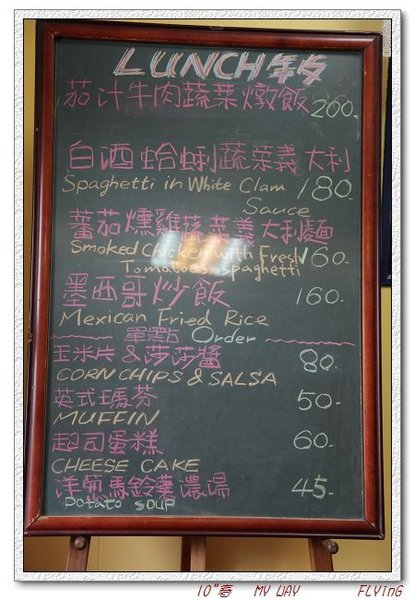 LUNCH 午餐
茄汁牛肉蔬菜燉飯 200.
白酒蛤蜊蔬菜義大利
Spaghetti in White Clam 180.
Sauce
蕃茄燻雞蔬菜義大利麵
Smoked Chicken with Fresh 160.
Tomatoes Spaghetti
墨西哥炒飯 160.
Mexican Fried Rice
單點 Order
玉米片&莎莎醬 80.
CORN CHIPS & SALSA
英式瑪芬 50.
MUFFIN
起司蛋糕 60.
CHEESE CAKE
洋蔥馬鈴薯濃湯 45.
Potato Soup
10"春 MY WAY FLYinG